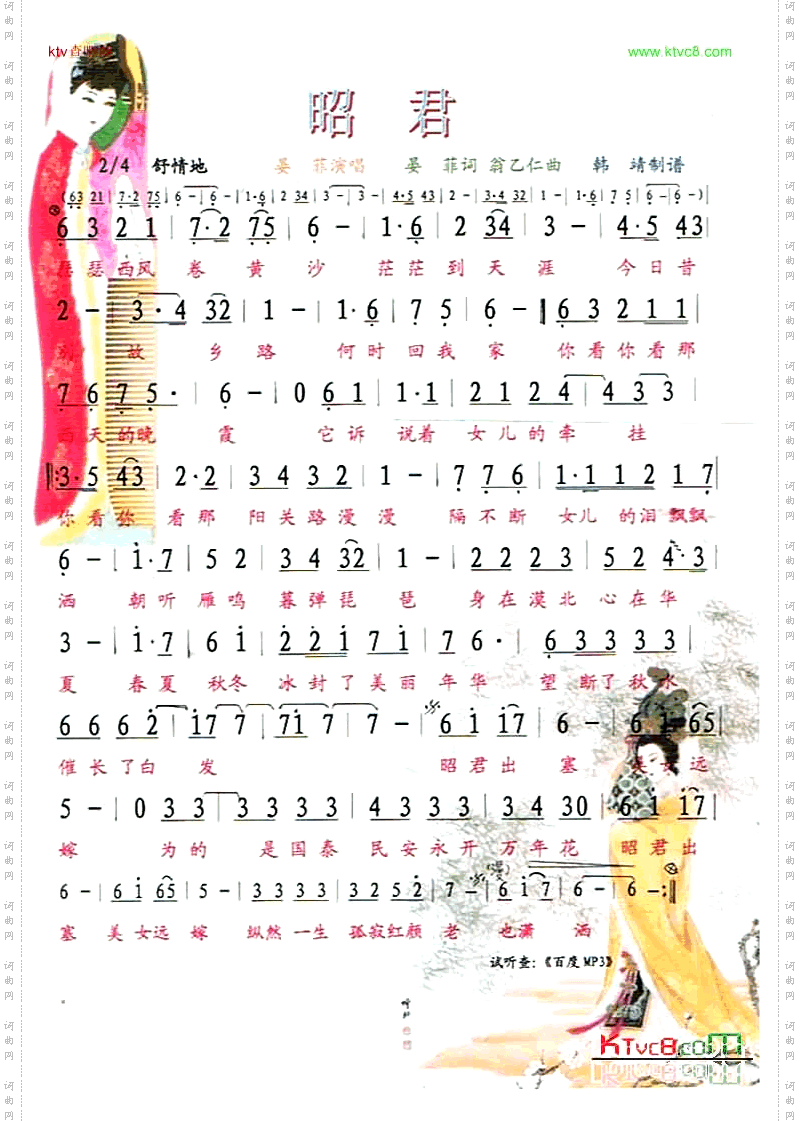 ktv查歌网 www.ktvc8.com
昭 君
2/4 舒情地 晏 菲演唱 晏 菲词 翁乙仁曲 韩 靖制谱
(63 21 | 7·2 75 | 6 – | 6 – | 1·6 | 2 34 | 3 – | 3 – | 4·5 43 | 2 – | 1 – | 1·6 | 7 5 | 6 – | 6 – )
6 3 2 1 | 7·2 75 | 6 – | 1·6 | 2 34 | 3 – | 4·5 43
瑟瑟西风 卷 黄 沙 茫茫到天涯 今日昔
2 – | 3·4 32 | 1 – | 1·6 | 7 5 | 6 – | 6 3 2 1 1
别 故 乡 路 何时回我 家 你看你看那
7 6 7 5· | 6 – | 0 6 1 | 1·1 | 2 1 2 4 | 4 3 3
西天的晚 霞 它诉 说着 女儿的牵 挂
3·5 43 | 2·2 | 3 4 3 2 | 1 – | 7 7 6 | 1·1 1 2 1 7
你看你 看那 阳关路漫漫 隔不断 女儿 的泪飘飘
6 – | 1·7 | 5 2 | 3 4 32 | 1 – | 2 2 2 3 | 5 2 4·3
洒 朝听 雁鸣 暮弹琵 琶 身在漠北 心在华
3 – | 1·7 | 6 1 | 2 2 1 7 1 | 7 6· | 6 3 3 3 3
夏 春夏 秋冬 冰封了美丽 年华 望断了秋水
6 6 6 2 | 17 7 | 71 7 | 7 – | 6 1 17 | 6 – | 6 1 65
催长了白 发 昭君出 塞 美女远
5 – | 0 3 3 | 3 3 3 | 4 3 3 3 | 3 4 30 | 6 1 17
嫁 为的 是国泰 民安永开 万年花 昭君出
6 – | 6 1 65 | 5 – | 3 3 3 3 | 3 2 5 2 | 7 – | (漫) 6 1 7 | 6 – | 6 – :‖
塞 美女远 嫁 纵然一生 孤寂红颜 老 也潇 洒
试听查:《百度MP3》
KTVC8.COM
词曲网